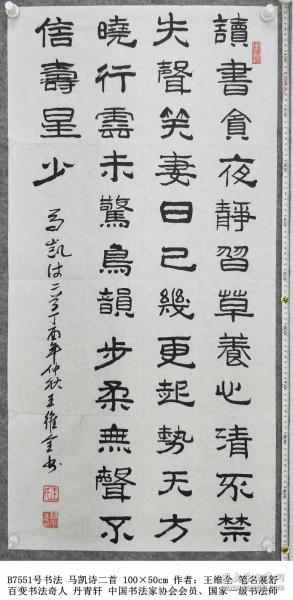 讀書貪夜靜習草養心清不禁
失聲笑妻曰已幾更起勢天方
曉行雲未驚鳥韻步柔無聲不
信壽星少
馬凱诗二首丁酉年仲秋王維全书
B7551号书法 马凯诗二首 100×50cm 作者：王维全 笔名展舒
百变书法奇人 丹青轩 中国书法家协会会员、国家一级书法师